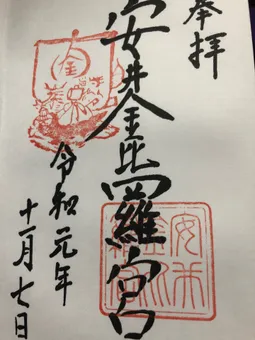 奉拝
安井金比羅宮
令和元年
十一月七日